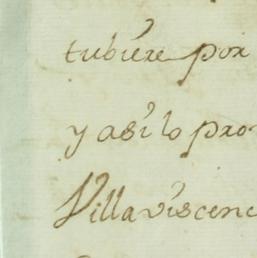 tubiere por
y asi lo pro
Villaviscenc